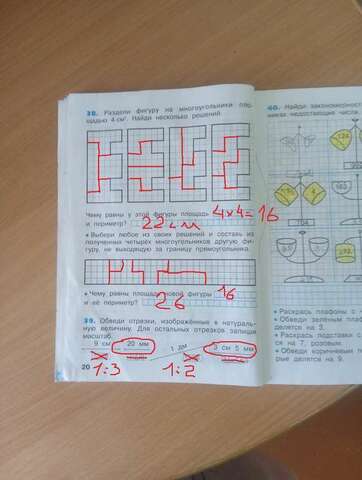 38. Раздели фигуру на многоугольники пло-
щадью 4 см². Найди несколько решений.
Чему равны у этой фигуры площадь 4×4=16
и периметр? 22 см
• Выбери любое из своих решений и составь из
полученных четырёх многоугольников другую фи-
гуру, не выходящую за границу прямоугольника.
• Чему равны площадь новой фигуры 16
и её периметр? 26
39. Обведи отрезки, изображённые в натураль-
ную величину. Для остальных отрезков запиши
масштаб.
9 см 20 мм 1 дм 3 см 5 мм
1:3 1:2
20
40. Найди закономерност
никах недостающие числа.
• Раскрась плафоны с
• Обведи зелёным
делятся на 3.
• Раскрась подставки
ся на 7, розовым.
• Обведи коричневым
рые делятся на 9.